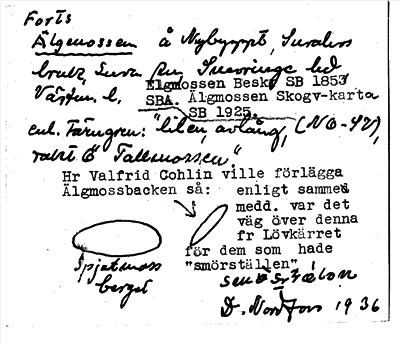 Forts
Älgmossen å Nybyggt, Surahs
bruk, Sura sn, Snevringe hd
Elgmossen Beskr SB 1853
Västm. l. SBA. Älgmossen Skogv-karta
SB 1925.
enl. Tärngren: "liten, avlång, (NO-SV),
rakt Ö Tallmossen."
Hr Valfrid Cohlin ville förlägga
Älgmossbacken så: enligt sammex
medd. var det
väg över denna
fr Lövkärret
för dem som hade
"smörställen"
Spjutmoss
berget
D. Nordfors 1936